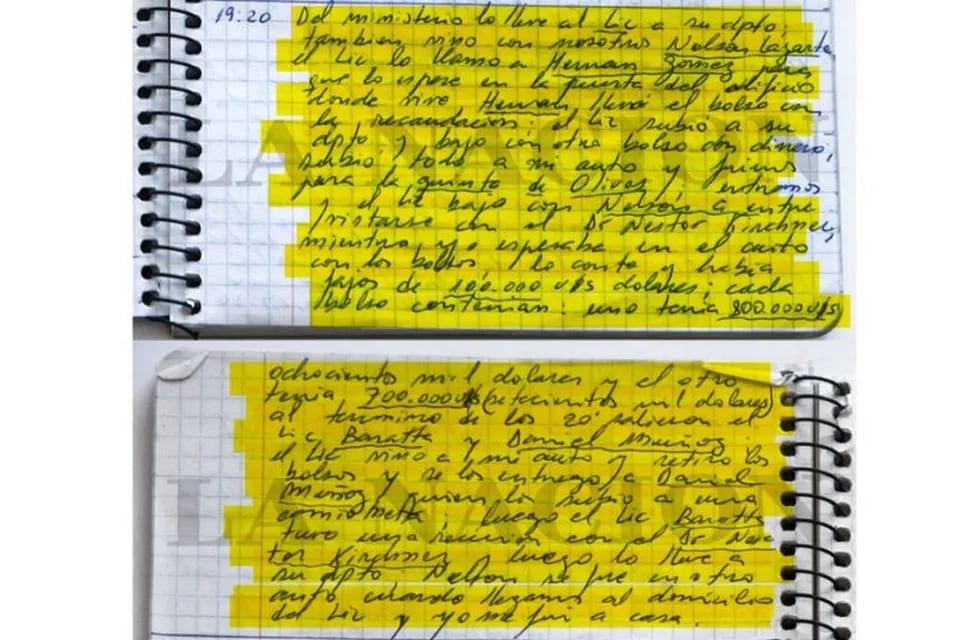 19:20 Del ministerio lo lleve al Lic a su dpto,
tambien vino con nosotros Nelson Lazarte
el Lic lo llamo a Hernan Gomez para
que lo espere en la puerta del edificio
donde vive Hernan, llevó el bolso con
la recaudacion, el Lic subió a su
dpto y bajo con otro bolso con dinero,
subio todo a mi auto y fuimos
para la quinta de Olivos, entramos
y el Lic bajo con Nelson a entre
vistarse con el Dr Nestor Kirchner,
mientras yo esperaba en el auto
con los bolsos, lo conte y habia
fajos de 100.000 U$S dolares; cada
bolso contenian: uno tenia 800.000 U$S
ochocientos mil dolares y el otro
tenia 700.000 U$S (setecientos mil dolares)
al termino de los 20 salieron el
Lic Baratta y Daniel Muñoz
el Lic vino a mi auto y retiro los
bolsos y se los entrego a Daniel
Muñoz, quien los subio a una
camioneta, luego el Lic Baratta
tuvo una reunion con el Dr Nes
tor Kirchner y luego lo lleve a
su dpto. Nelson se fue en otro
auto cuando llegamos al domicilio
del Lic y yo me fui a casa.
LA NACION
LA NACION